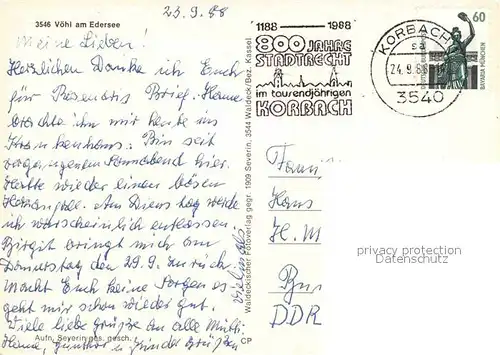 3546 Vöhl am Edersee
23.9.88
Meine Lieben!
Herzlichen Danke ich Euch
für Rosemaris Brief. Hanne
brachte ihn mir heute ins
Krankenhaus. Bin seit
vergangenem Sonnabend hier.
Hatte wieder einen bösen
Herzanfall. Am Dienstag werde
ich warscheinlich entlassen.
Birgit bringt mich am
Donnerstag den 29.9. zurück.
Macht Euch keine Sorgen es
geht mir schon wieder gut.
Viele liebe Grüße an alle
Günther
Grüßen
Aufn. Severin ges. gesch.
CP
Waldeckischer Fotoverlag gegr. 1909 Severin, 3544 Waldeck/Bez. Kassel
1188 1988
800 JAHRE
STADTRECHT
im tausendjährigen
KORBACH
KORBACH
sa
24.9.88
3540
60
BAVARIA MÜNCHEN
Hans
H. M
DDR
privacy protection
Datenschutz